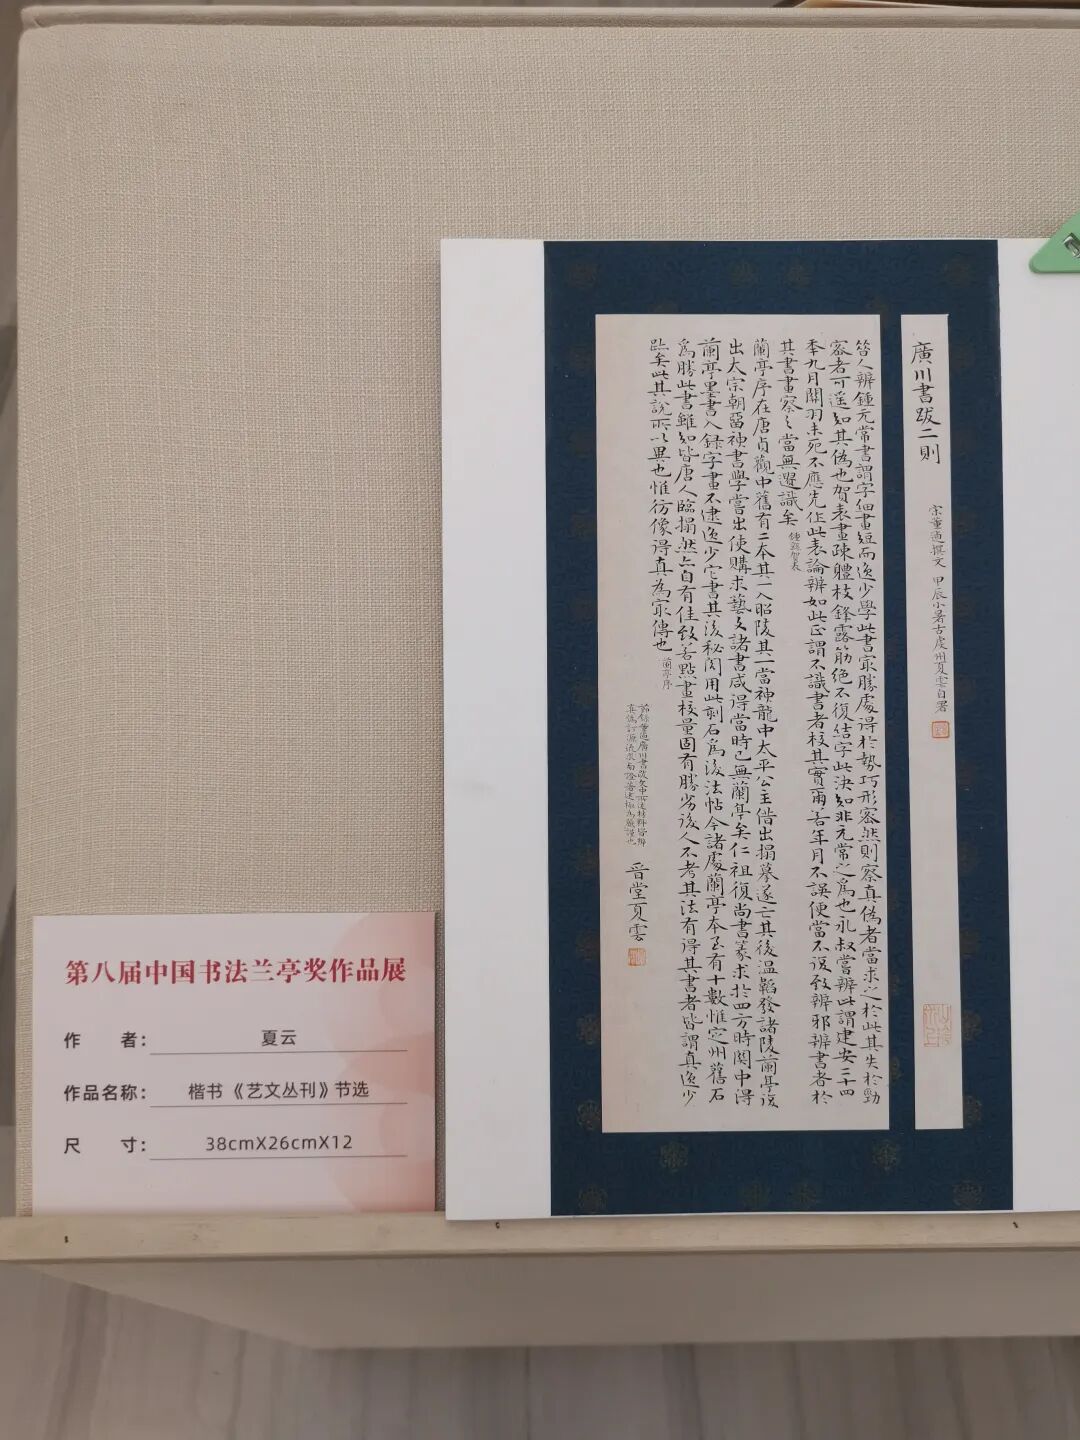 第八届中国书法兰亭奖作品展
作　　者：夏云
作品名称：楷书《艺文丛刊》节选
尺　　寸：38cmX26cmX12
廣川書跋二則
宗董逌撰文 甲辰小暑古處州夏雲自署
昔人辨鍾元常書謂字細畫短而逸少學此書㝡勝處得於勢巧形密然則察真偽者當求之於此其失於勁
密者可遥知其偽也賀表畫疎體枝鋒露筋絶不復結字此決知非元常之爲也永叔嘗辨此謂建安二十四
秊九月關羽未死不應先作此表論辨如此正謂不識書者校其實爾若年月不誤便當不復致辨邪辨書者於
其書畫察之當無遯識矣 鍾繇賀表
蘭亭序在唐貞觀中舊有二本其一入昭陵其一當神龍中太平公主借出搨摹遂亡其後溫韜發諸陵蘭亭復
出太宗朝留神書學嘗出使購求藝文諸書咸得當時已無蘭亭矣仁祖復尚書篆求於四方時関中得
蘭亭墨書入録字畫不逮逸少它書其後秘閣用此刻石爲後法帖今諸處蘭亭本至有十數惟定州舊石
爲勝此書雖知皆唐人臨搨然亦自有佳致若點畫校量固有勝劣後人不考其法有得其書者皆謂真逸少
跡矣此其説所以異也惟彷像得真為家傳也 蘭亭序
節録董逌廣川書跋
晉堂夏雲